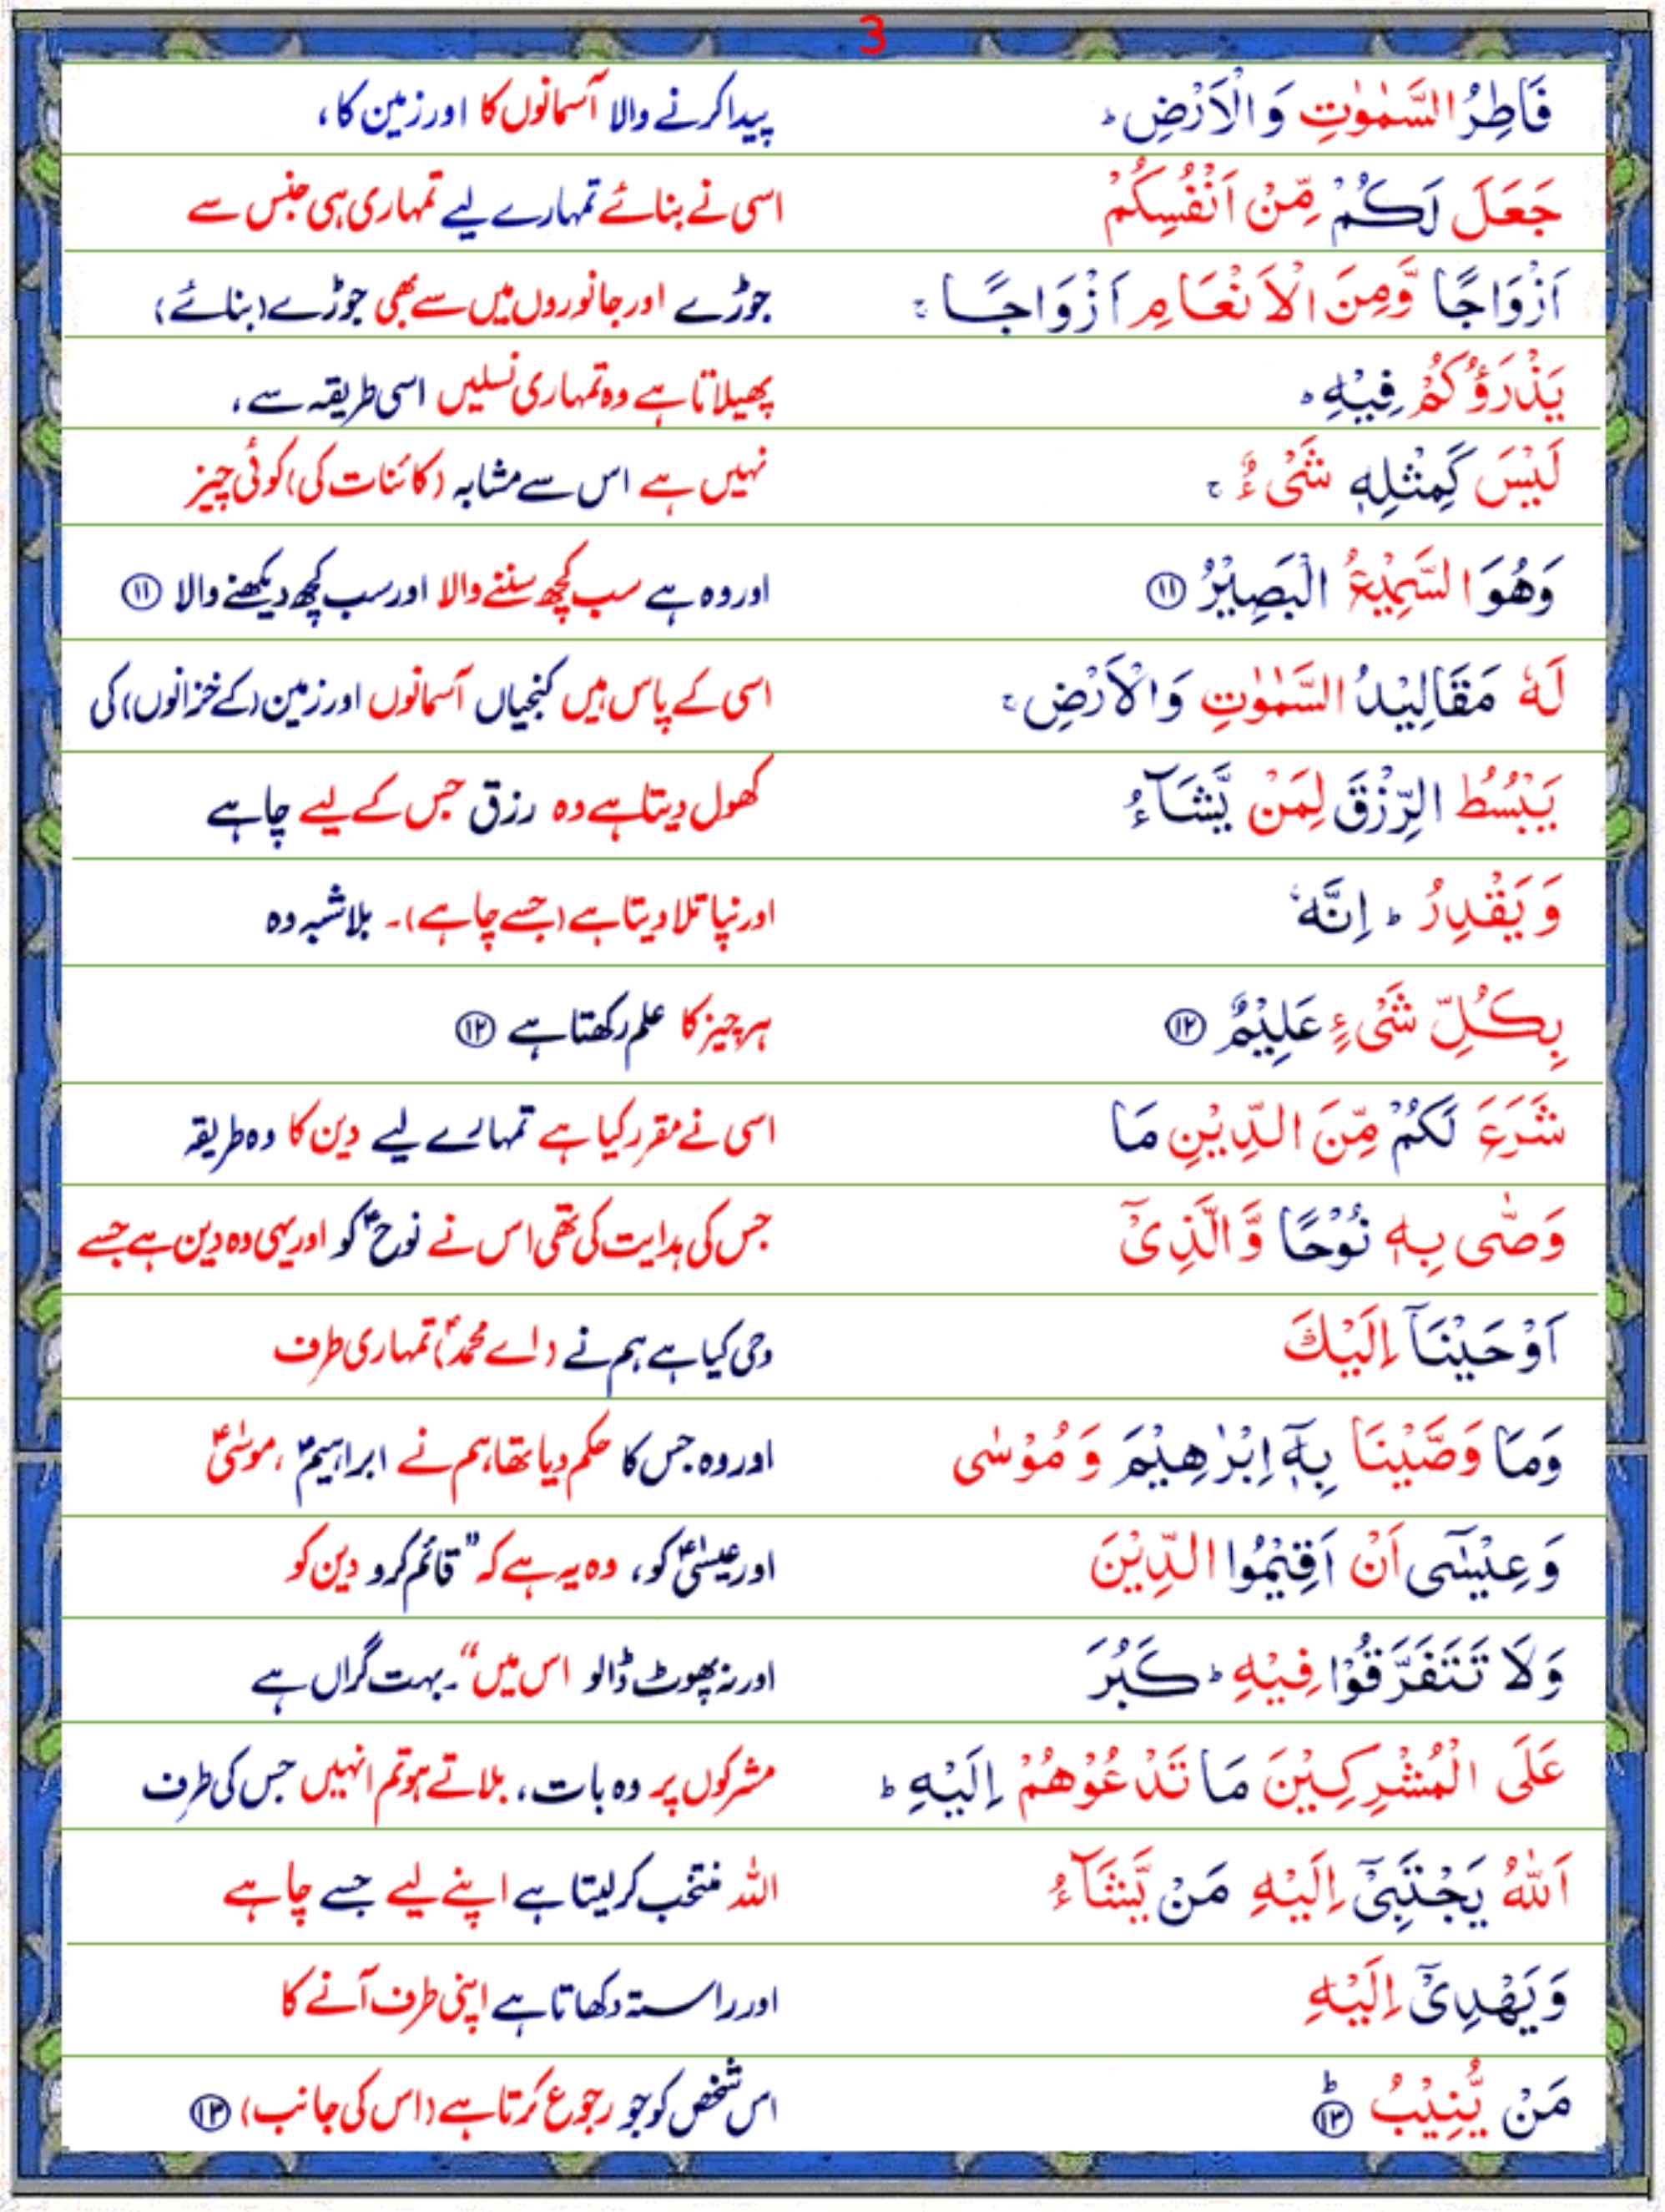 3
فَاطِرُ السَّمٰوٰتِ وَالْاَرْضِ ؕ پیدا کرنے والا آسمانوں کا اور زمین کا،
جَعَلَ لَكُمْ مِّنْ اَنْفُسِكُمْ اسی نے بنائے تمہارے لیے تمہاری ہی جنس سے
اَزْوَاجًا وَّمِنَ الْاَنْعَامِ اَزْوَاجًا ۚ جوڑے اور جانوروں میں سے بھی جوڑے (بنائے)
يَذْرَؤُكُمْ فِيْهِ ؕ پھیلاتا ہے وہ تمہاری نسلیں اسی طریقہ سے،
لَيْسَ كَمِثْلِهٖ شَىْءٌ ۚ نہیں ہے اس سے مشابہ (کائنات کی) کوئی چیز
وَهُوَ السَّمِيْعُ الْبَصِيْرُ ۝۱۱ اور وہ ہے سب کچھ سننے والا اور سب کچھ دیکھنے والا ۝۱۱
لَهٗ مَقَالِيْدُ السَّمٰوٰتِ وَالْاَرْضِ ۚ اسی کے پاس ہیں کنجیاں آسمانوں اور زمین (کے خزانوں) کی
يَبْسُطُ الرِّزْقَ لِمَنْ يَّشَآءُ کھول دیتا ہے وہ رزق جس کے لیے چاہے
وَيَقْدِرُ ؕ اِنَّهٗ اور نپا تلا دیتا ہے (جسے چاہے)۔ بلاشبہ وہ
بِكُلِّ شَىْءٍ عَلِيْمٌ ۝۱۲ ہر چیز کا علم رکھتا ہے ۝۱۲
شَرَعَ لَكُمْ مِّنَ الدِّيْنِ مَا اسی نے مقرر کیا ہے تمہارے لیے دین کا وہ طریقہ
وَصّٰى بِهٖ نُوْحًا وَّالَّذِىْٓ جس کی ہدایت کی تھی اس نے نوحؑ کو اور یہی وہ دین ہے جسے
اَوْحَيْنَآ اِلَيْكَ وحی کیا ہے ہم نے (اے محمدؐ) تمہاری طرف
وَمَا وَصَّيْنَا بِهٖٓ اِبْرٰهِيْمَ وَمُوْسٰى اور وہ جس کا حکم دیا تھا ہم نے ابراہیمؑ، موسٰیؑ
وَعِيْسٰٓى اَنْ اَقِيْمُوا الدِّيْنَ اور عیسٰیؑ کو، وہ یہ ہے کہ ”قائم کرو دین کو
وَلَا تَتَفَرَّقُوْا فِيْهِ ؕ كَبُرَ اور نہ پھوٹ ڈالو اس میں“۔ بہت گراں ہے
عَلَى الْمُشْرِكِيْنَ مَا تَدْعُوْهُمْ اِلَيْهِ ؕ مشرکوں پر وہ بات، بلاتے ہو تم انہیں جس کی طرف
اَللّٰهُ يَجْتَبِىْٓ اِلَيْهِ مَنْ يَّشَآءُ اللہ منتخب کرلیتا ہے اپنے لیے جسے چاہے
وَيَهْدِىْٓ اِلَيْهِ اور راستہ دکھاتا ہے اپنی طرف آنے کا
مَنْ يُّنِيْبُ ؕ۝۱۳ اس شخص کو جو رجوع کرتا ہے (اس کی جانب) ۝۱۳